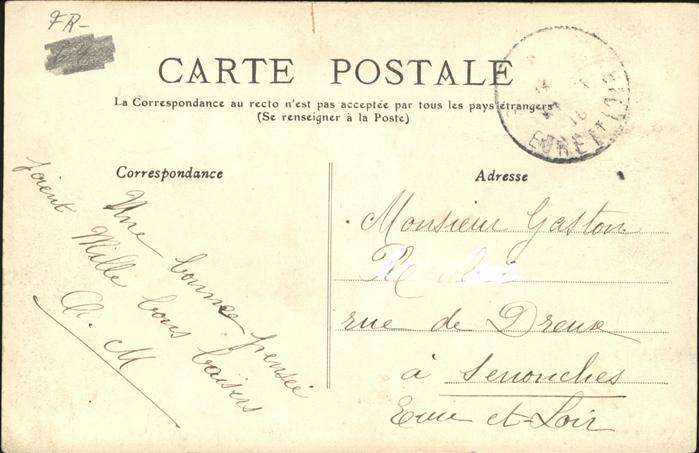 FR-
CARTE POSTALE
La Correspondance au recto n'est pas acceptée par tous les pays étrangers
(Se renseigner à la Poste)
Correspondance
Une bonne pensée
Mille bons baisers
M
Adresse
Monsieur Gaston
rue de Dreux
à Senonches
Eure et-Loir